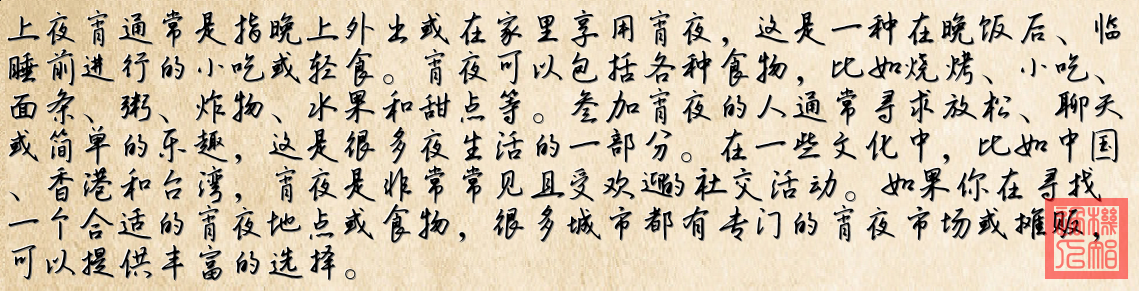 上夜宵通常是指晚上外出或在家里享用宵夜，这是一种在晚饭后、临
睡前进行的小吃或轻食。宵夜可以包括各种食物，比如烧烤、小吃、
面条、粥、炸物、水果和甜点等。参加宵夜的人通常寻求放松、聊天
或简单的乐趣，这是很多夜生活的一部分。在一些文化中，比如中国
、香港和台湾，宵夜是非常常见且受欢迎的社交活动。如果你在寻找
一个合适的宵夜地点或食物，很多城市都有专门的宵夜市场或摊贩，
可以提供丰富的选择。